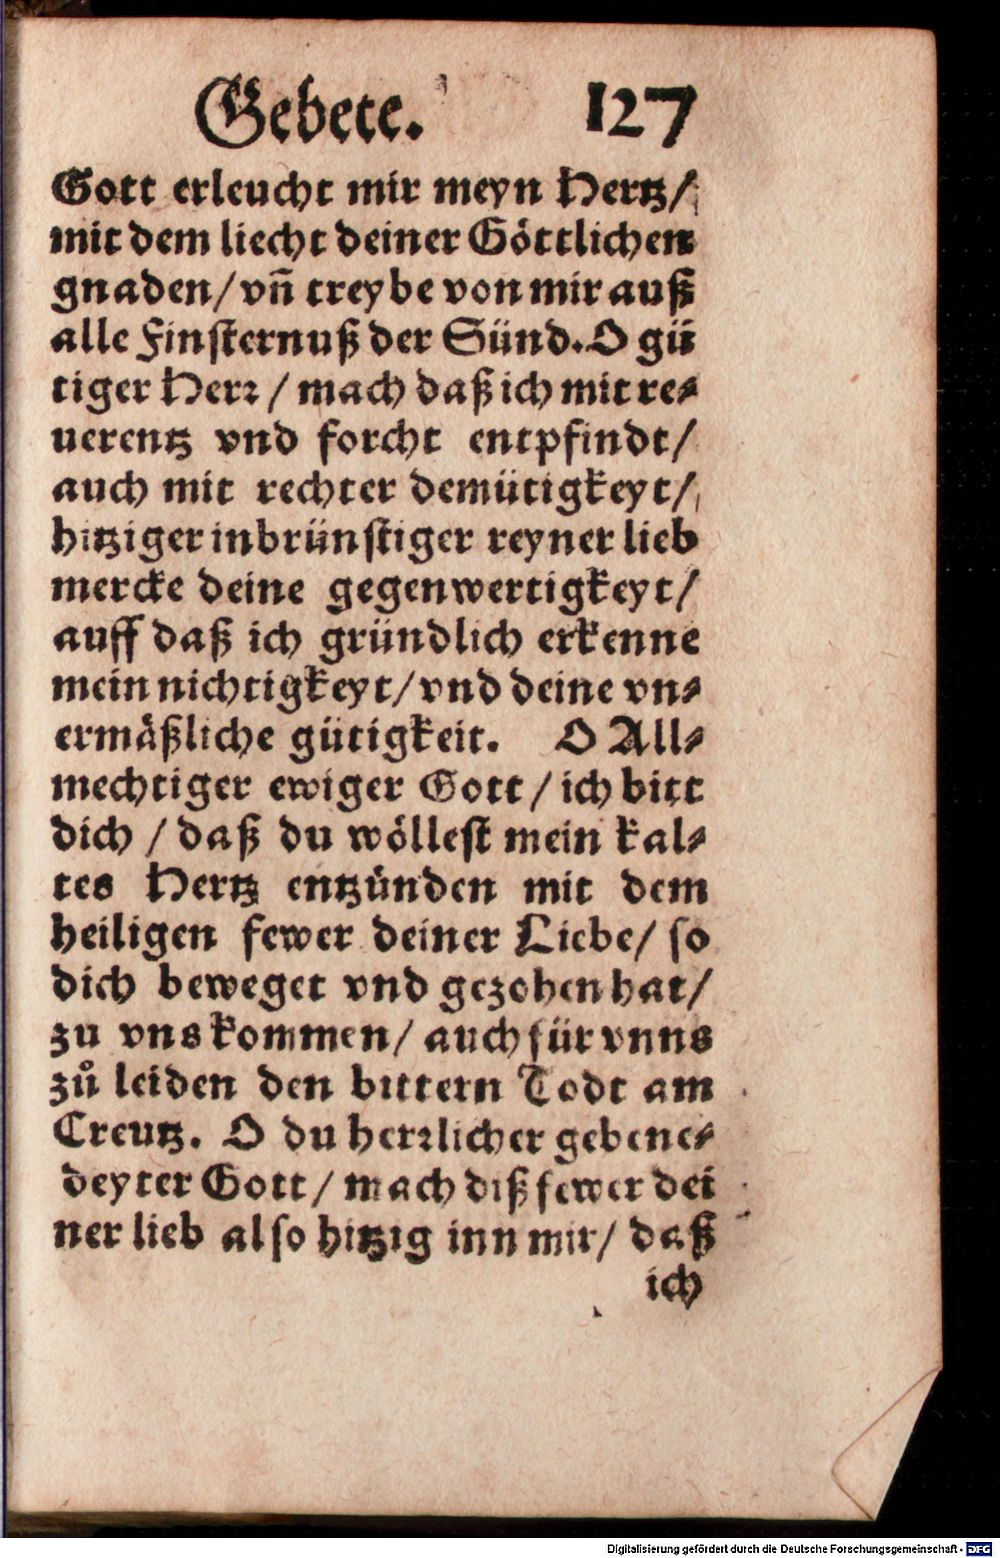 Gebete. 127
Gott erleucht mir meyn Hertz/
mit dem liecht deiner Göttlichen
gnaden/ vn̄ treybe von mir auß
alle Finsternuß der Sünd. O gü
tiger Herꝛ / mach daß ich mit re⸗
uerentz vnd forcht entpfindt/
auch mit rechter demütigkeyt/
hitziger inbrünstiger reyner lieb
mercke deine gegenwertigkeyt/
auff daß ich gründlich erkenne
mein nichtigkeyt/ vnd deine vn⸗
ermäßliche gütigkeit. O All⸗
mechtiger ewiger Gott / ich bitt
dich / daß du wöllest mein kal⸗
tes Hertz entzünden mit dem
heiligen fewer deiner Liebe/ so
dich beweget vnd gezohen hat/
zu vns kommen/ auch für vnns
zů leiden den bittern Todt am
Creutz. O du herꝛlicher gebene⸗
deyter Gott/ mach diß fewer dei
ner lieb also hitzig inn mir/ daß
ich
Digitalisierung gefördert durch die Deutsche Forschungsgemeinschaft - DFG